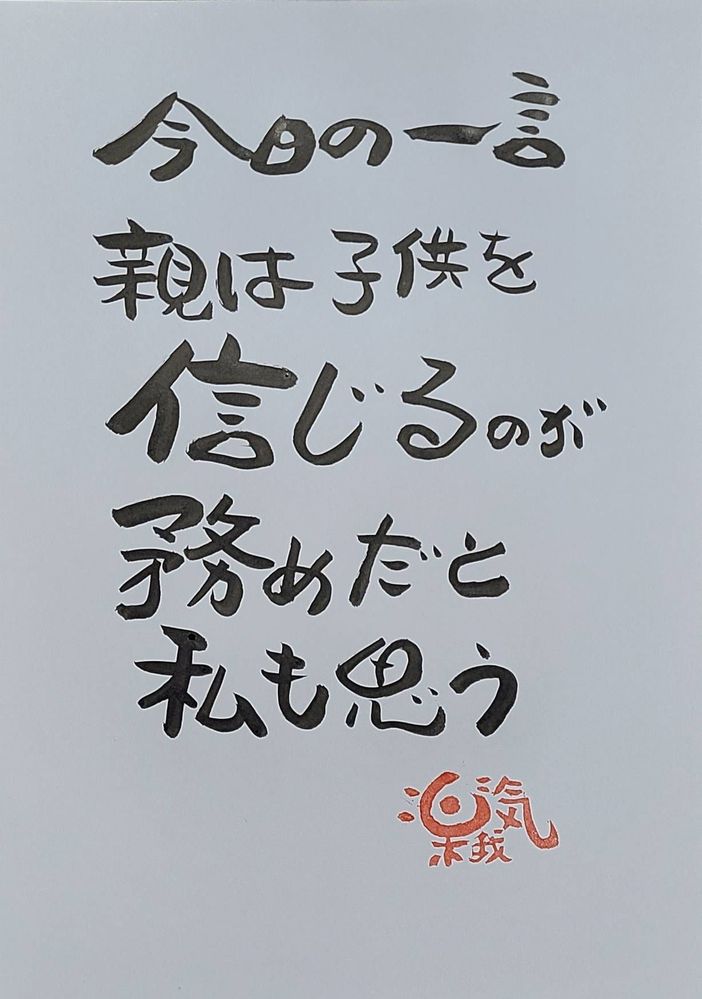 今日の一言
親は子供を
信じるのが
務めだと
私も思う
楽気